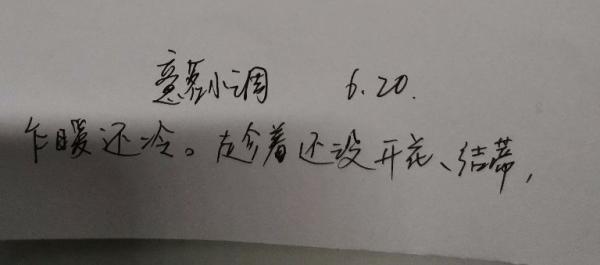 意慕小调 6.20.
乍暖还冷。趁着还没开花、结蒂，